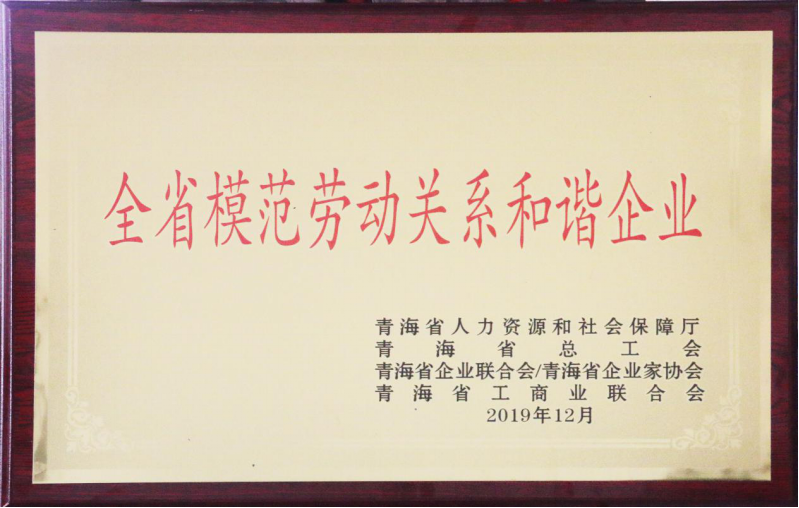 全省模范劳动关系和谐企业
青海省人力资源和社会保障厅
青海省总工会
青海省企业联合会/青海省企业家协会
青海省工商业联合会
2019年12月